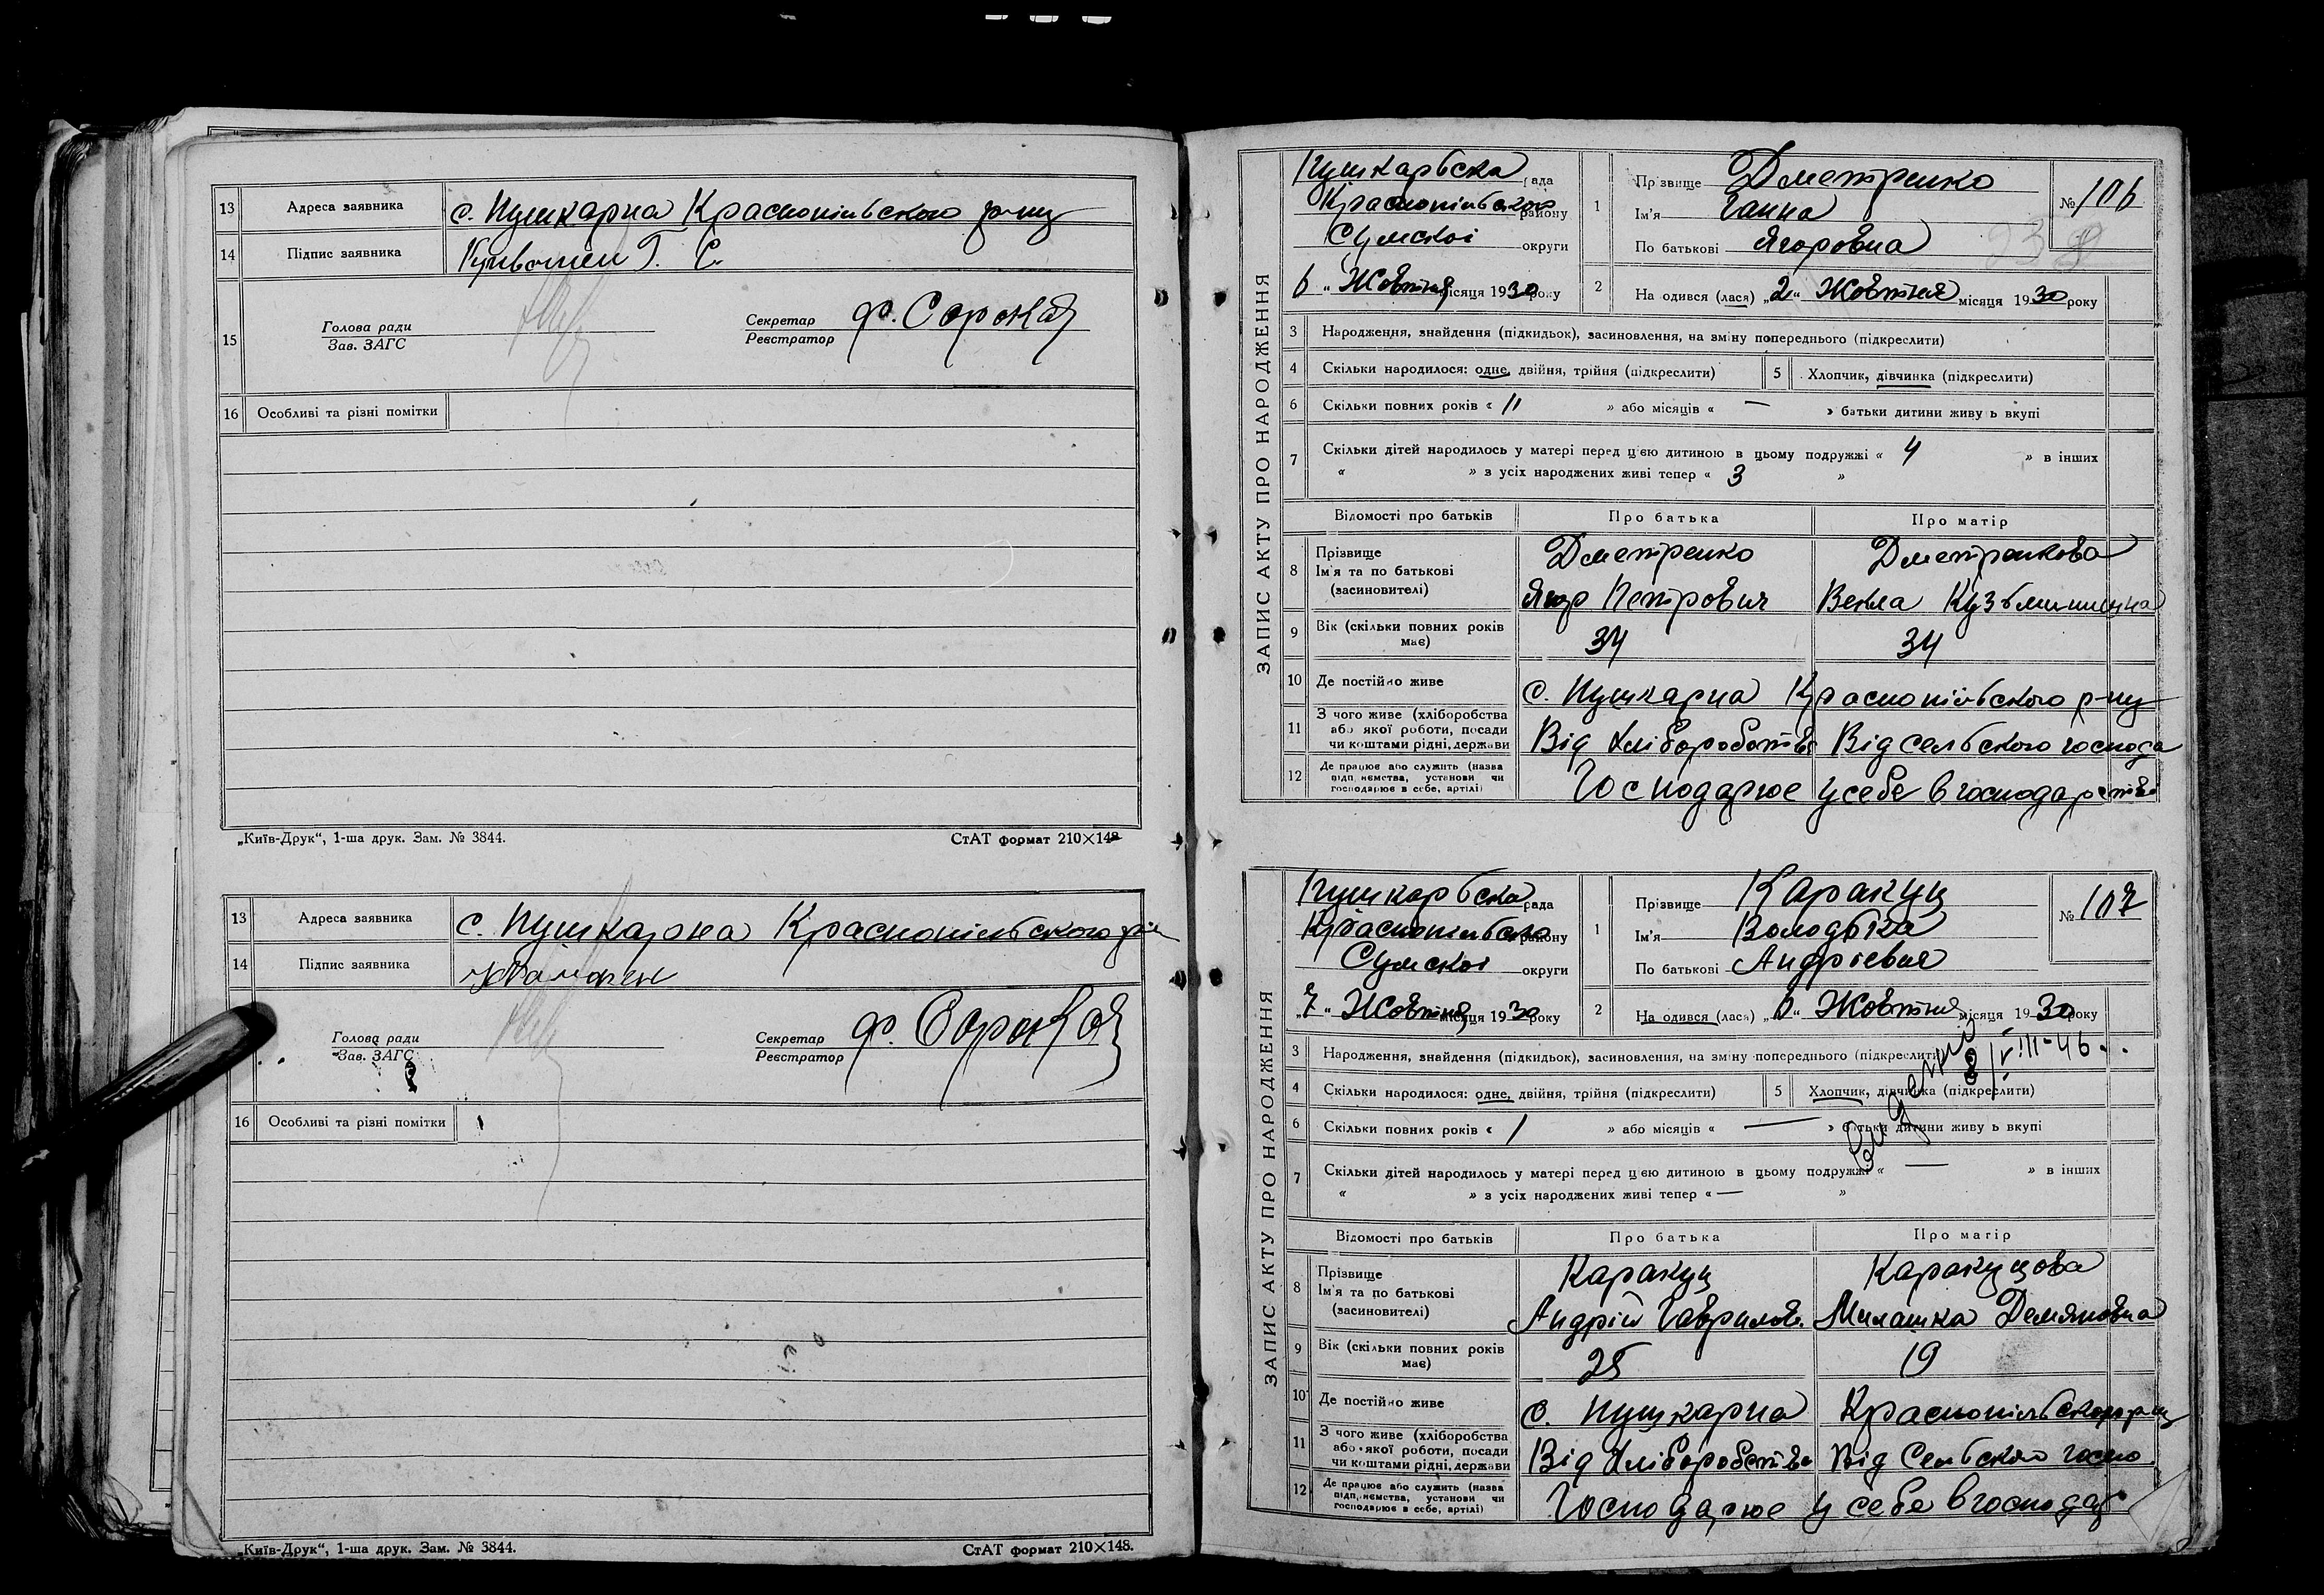 13 Адреса заявника с. Пушкарна Краснопільського р-ну
14 Підпис заявника
15 Голова ради
Зав. ЗАГС
Секретар
Реєстратор ф. Сорока
16 Особливі та різні помітки
„Київ-Друк“, 1-ша друк. Зам. № 3844. СтАТ формат 210×148
13 Адреса заявника с. Пушкарна Краснопільського р-ну
14 Підпис заявника
Голова ради
Зав. ЗАГС
Секретар
Реєстратор ф. Сорока
16 Особливі та різні помітки
„Київ-Друк“, 1-ша друк. Зам. № 3844. СтАТ формат 210×148.
ЗАПИС АКТУ ПРО НАРОДЖЕННЯ
Пушкарьска рада
Краснопільського району
Сумскої округи
6 „ Жовтня місяця 1930 року
1 Прізвище Дметренко
Ім'я Ганна
По батькові Ягоровна
№ 106
2 На одився (лася) „2“ Жовтня місяця 1930 року
3 Народження, знайдення (підкидьок), засиновлення, на зміну попереднього (підкреслити)
4 Скільки народилося: одне, двійня, трійня (підкреслити) 5 Хлопчик, дівчинка (підкреслити)
6 Скільки повних років « 11 » або місяців « — » батьки дитини живу ь вкупі
7 Скільки дітей народилось у матері перед цією дитиною в цьому подружжі « 4 » в інших
« » з усіх народжених живі тепер « 3 »
Відомості про батьків Про батька Про матір
8 Прізвище Дметренко Дметренкова
Ім'я та по батькові
(засиновителі) Ягор Петрович Векла Кузьминишна
9 Вік (скільки повних років має) 34 34
10 Де постійно живе с. Пушкарна Краснопільського р-ну
11 З чого живе (хліборобства
або якої роботи, посади
чи коштами рідні, держави Від хліборобства Від сельського господа
12 Де працює або служить (назва
підприємства, установи чи
господарює в себе, артілі) Господарює у себе в господарстві
ЗАПИС АКТУ ПРО НАРОДЖЕННЯ
Пушкарьска рада
Краснопільського району
Сумскої округи
„7“ Жовтня місяця 1930 року
1 Прізвище Каракуц
Ім'я Володька
По батькові Андрієвич
№ 107
2 На одився (лася) „6“ Жовтня місяця 1930 року
3 Народження, знайдення (підкидьок), засиновлення, на зміну попереднього (підкреслити)
4 Скільки народилося: одне, двійня, трійня (підкреслити) 5 Хлопчик, дівчинка (підкреслити)
6 Скільки повних років « 1 » або місяців « — » батьки дитини живу ь вкупі
7 Скільки дітей народилось у матері перед цією дитиною в цьому подружжі « — » в інших
« » з усіх народжених живі тепер « — »
Відомості про батьків Про батька Про матір
8 Прізвище Каракуц Каракуцова
Ім'я та по батькові
(засиновителі) Андрій Гаврилов. Милашка Демяновна
9 Вік (скільки повних років має) 25 19
10 Де постійно живе с. Пушкарна Краснопільского р-ну
11 З чого живе (хліборобства
або якої роботи, посади
чи коштами рідні, держави Від хліборобства Від Сельского госпо
12 Де працює або служить (назва
підприємства, установи чи
господарює в себе, артілі) Господарює у себе в господар